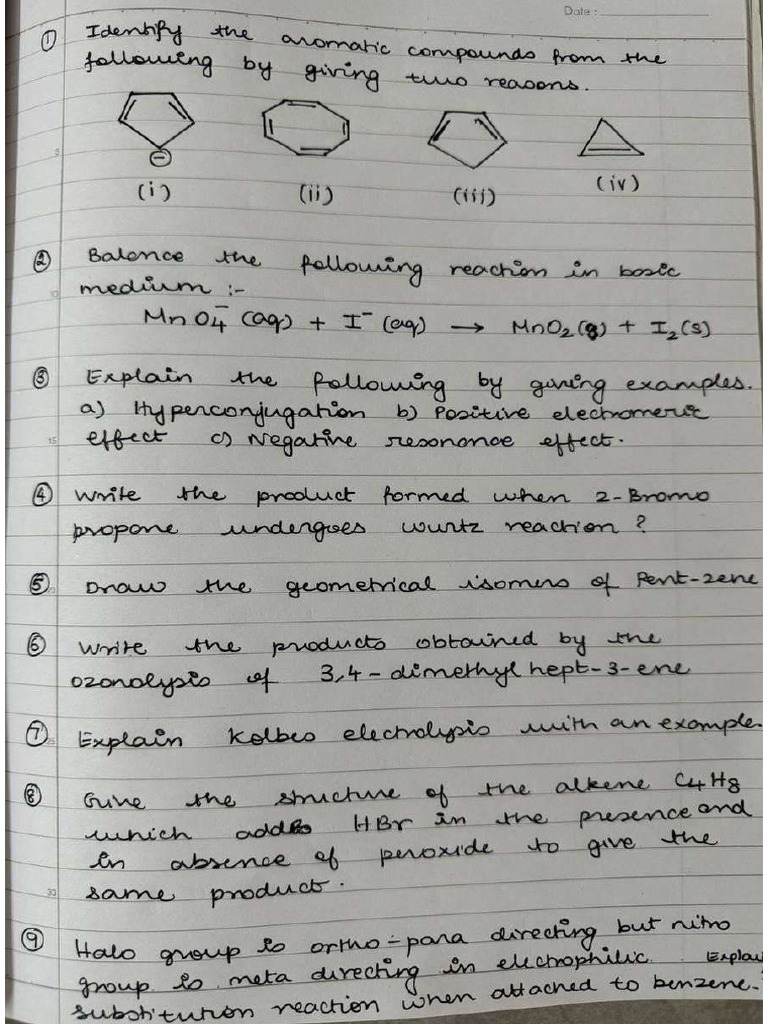 Date :
① Identify the aromatic compounds from the
following by giving two reasons.
(i) (ii) (iii) (iv)
② Balance the following reaction in basic
medium :-
MnO₄⁻ (aq) + I⁻ (aq) → MnO₂(s) + I₂(s)
③ Explain the following by giving examples.
a) Hyperconjugation b) Positive electromeric
effect c) Negative resonance effect.
④ Write the product formed when 2-Bromo
propane undergoes wurtz reaction ?
⑤ Draw the geometrical isomers of Pent-2ene
⑥ Write the products obtained by the
ozonolysis of 3,4-dimethyl hept-3-ene
⑦ Explain Kolbes electrolysis with an example.
⑧ Give the structure of the alkene C₄H₈
which adds HBr in the presence and
in absence of peroxide to give the
same product.
⑨ Halo group is ortho-para directing but nitro
group is meta directing in electrophilic Explain
substitution reaction when attached to benzene.